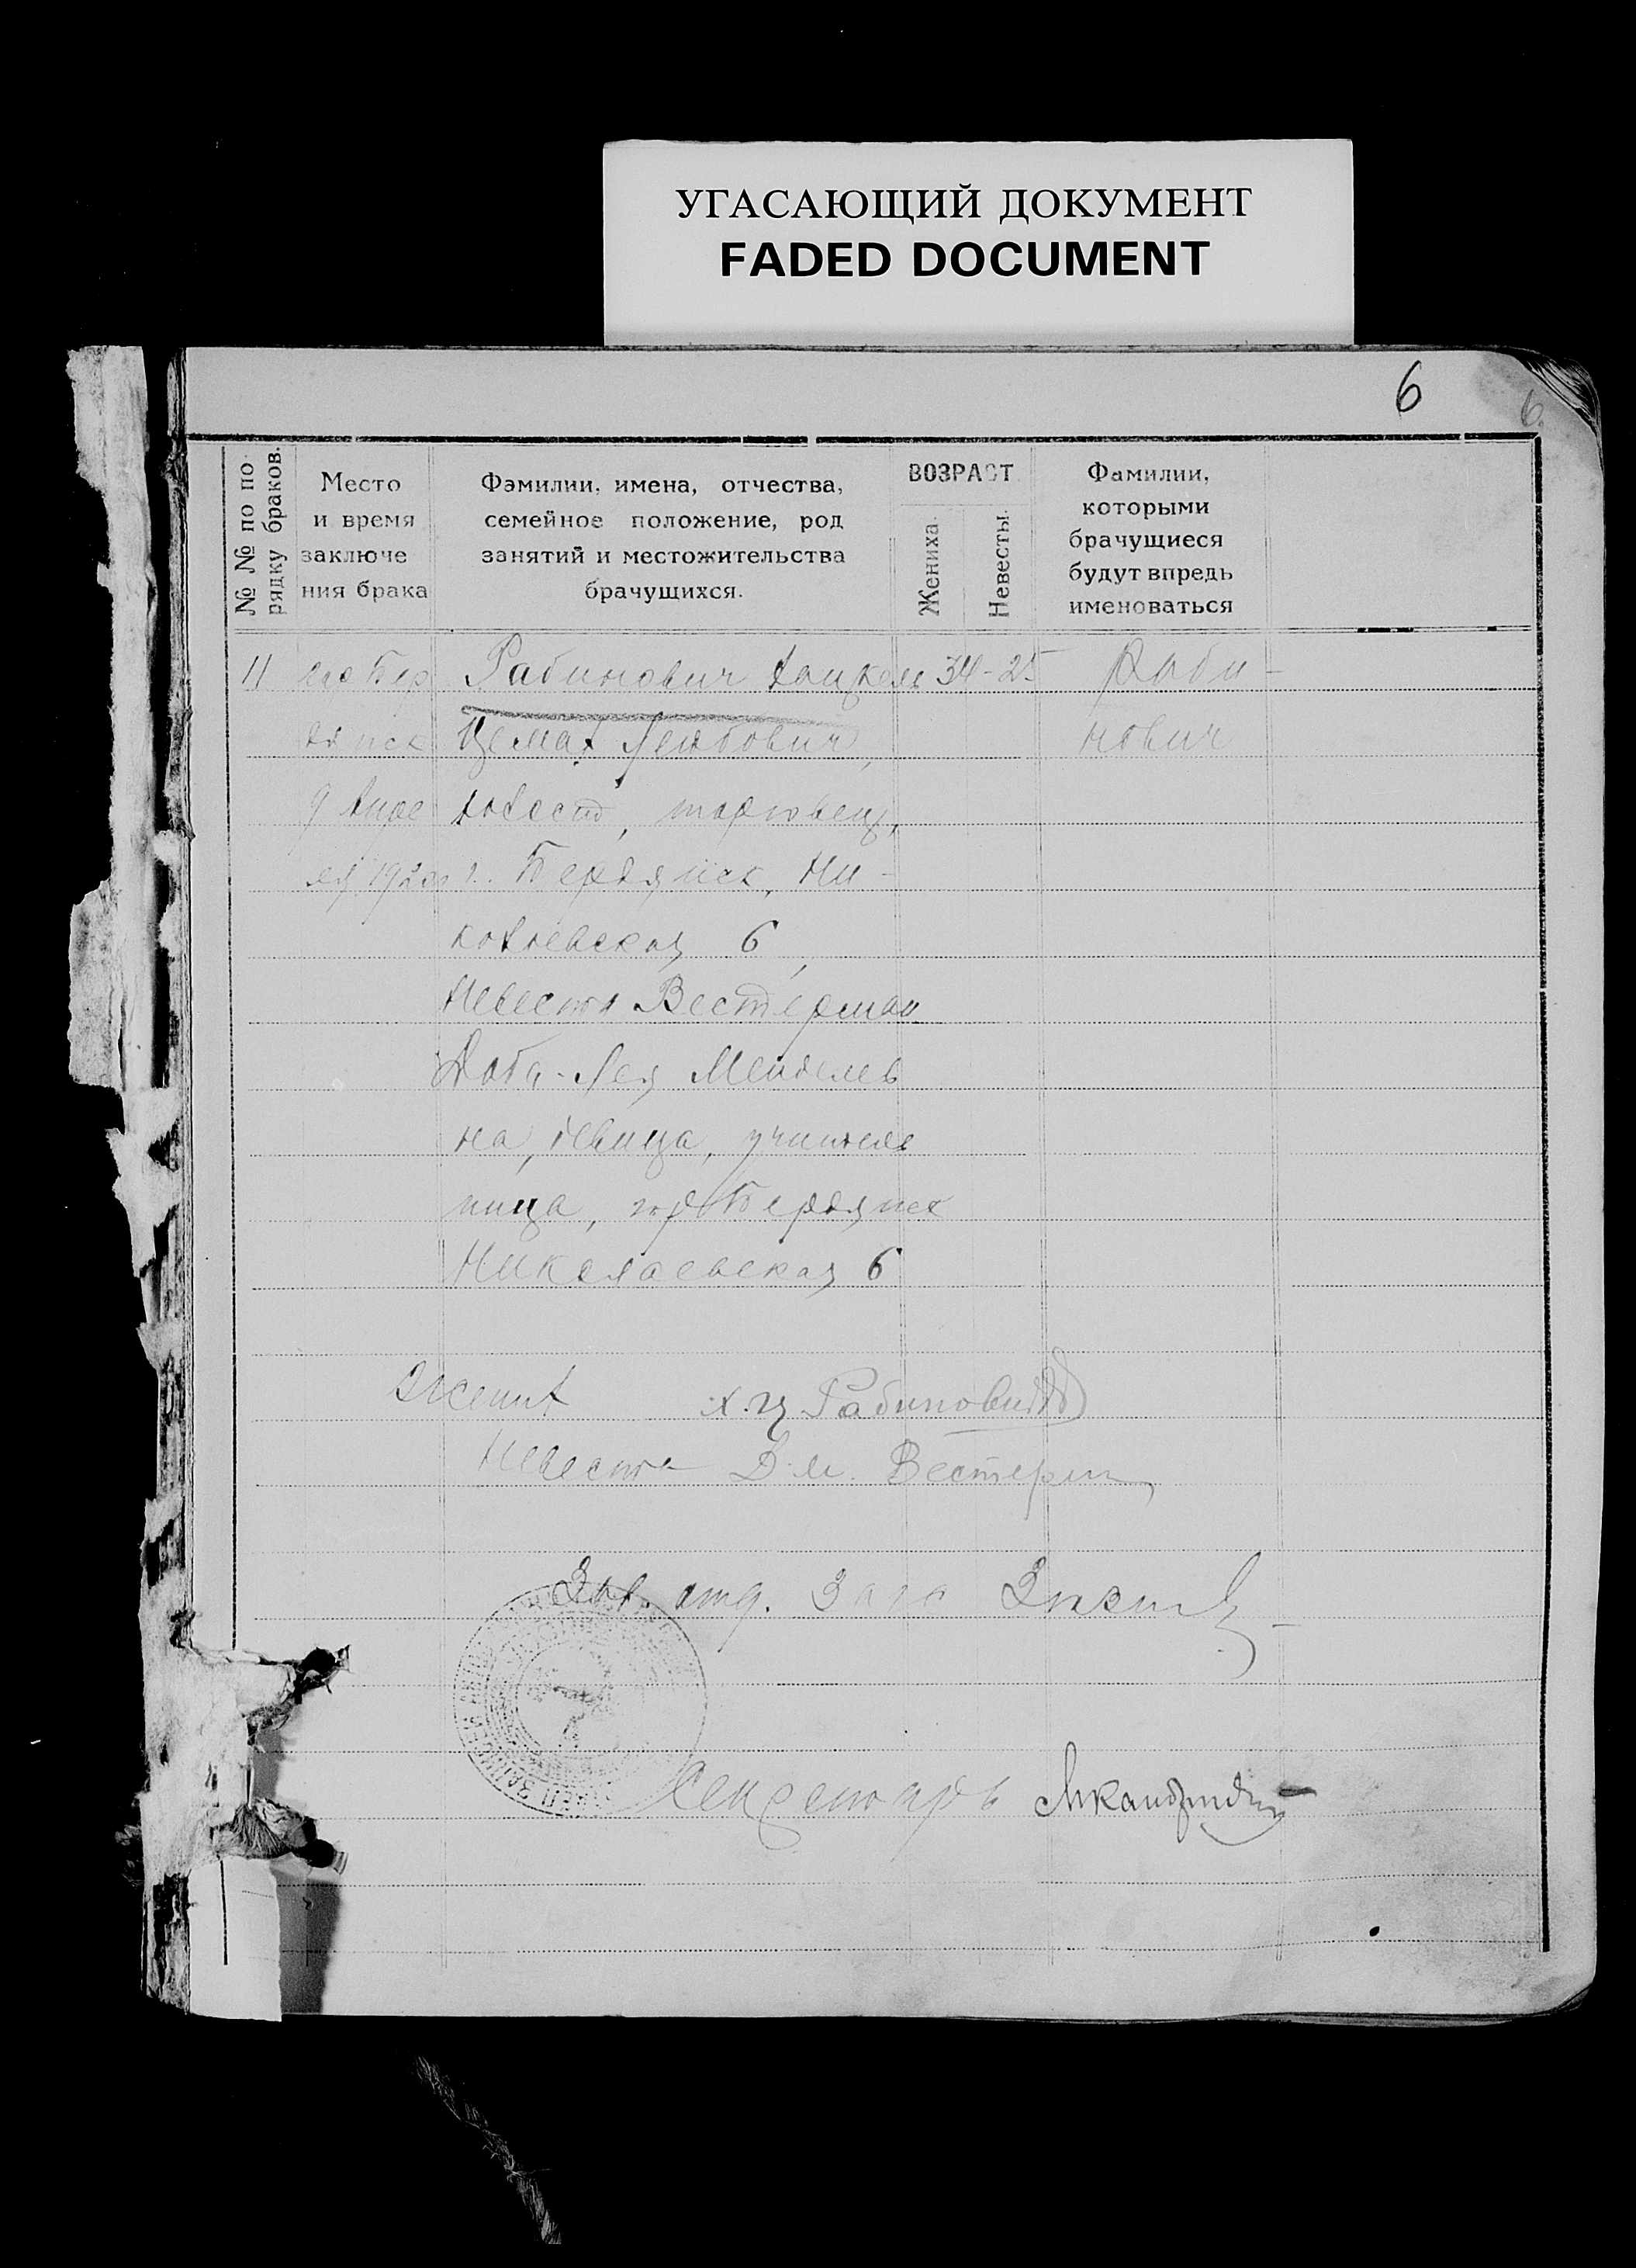 УГАСАЮЩИЙ ДОКУМЕНТ
FADED DOCUMENT
6
6
№ № по по-
рядку браков.
Место
и время
заключе
ния брака
Фамилии, имена, отчества,
семейное положение, род
занятий и местожительства
брачущихся.
ВОЗРАСТ
Жениха.
Невесты.
Фамилии,
которыми
брачущиеся
будут впредь
именоваться
11 Бер Рабинович 34-25 Раби-
дянск Цемах Лейбович, нович
9 Апре холост, торговец,
ля 1920 г. Бердянск, Ни-
колаевская 6,
Невеста Вестерман
Доба-Лея Менделев
на, девица, учитель
ница, гор Бердянск
Николаевская 6
Жених Х. Ц Рабинович
Невеста Д. М. Вестерм
Зав. отд. Загс
Секретарь